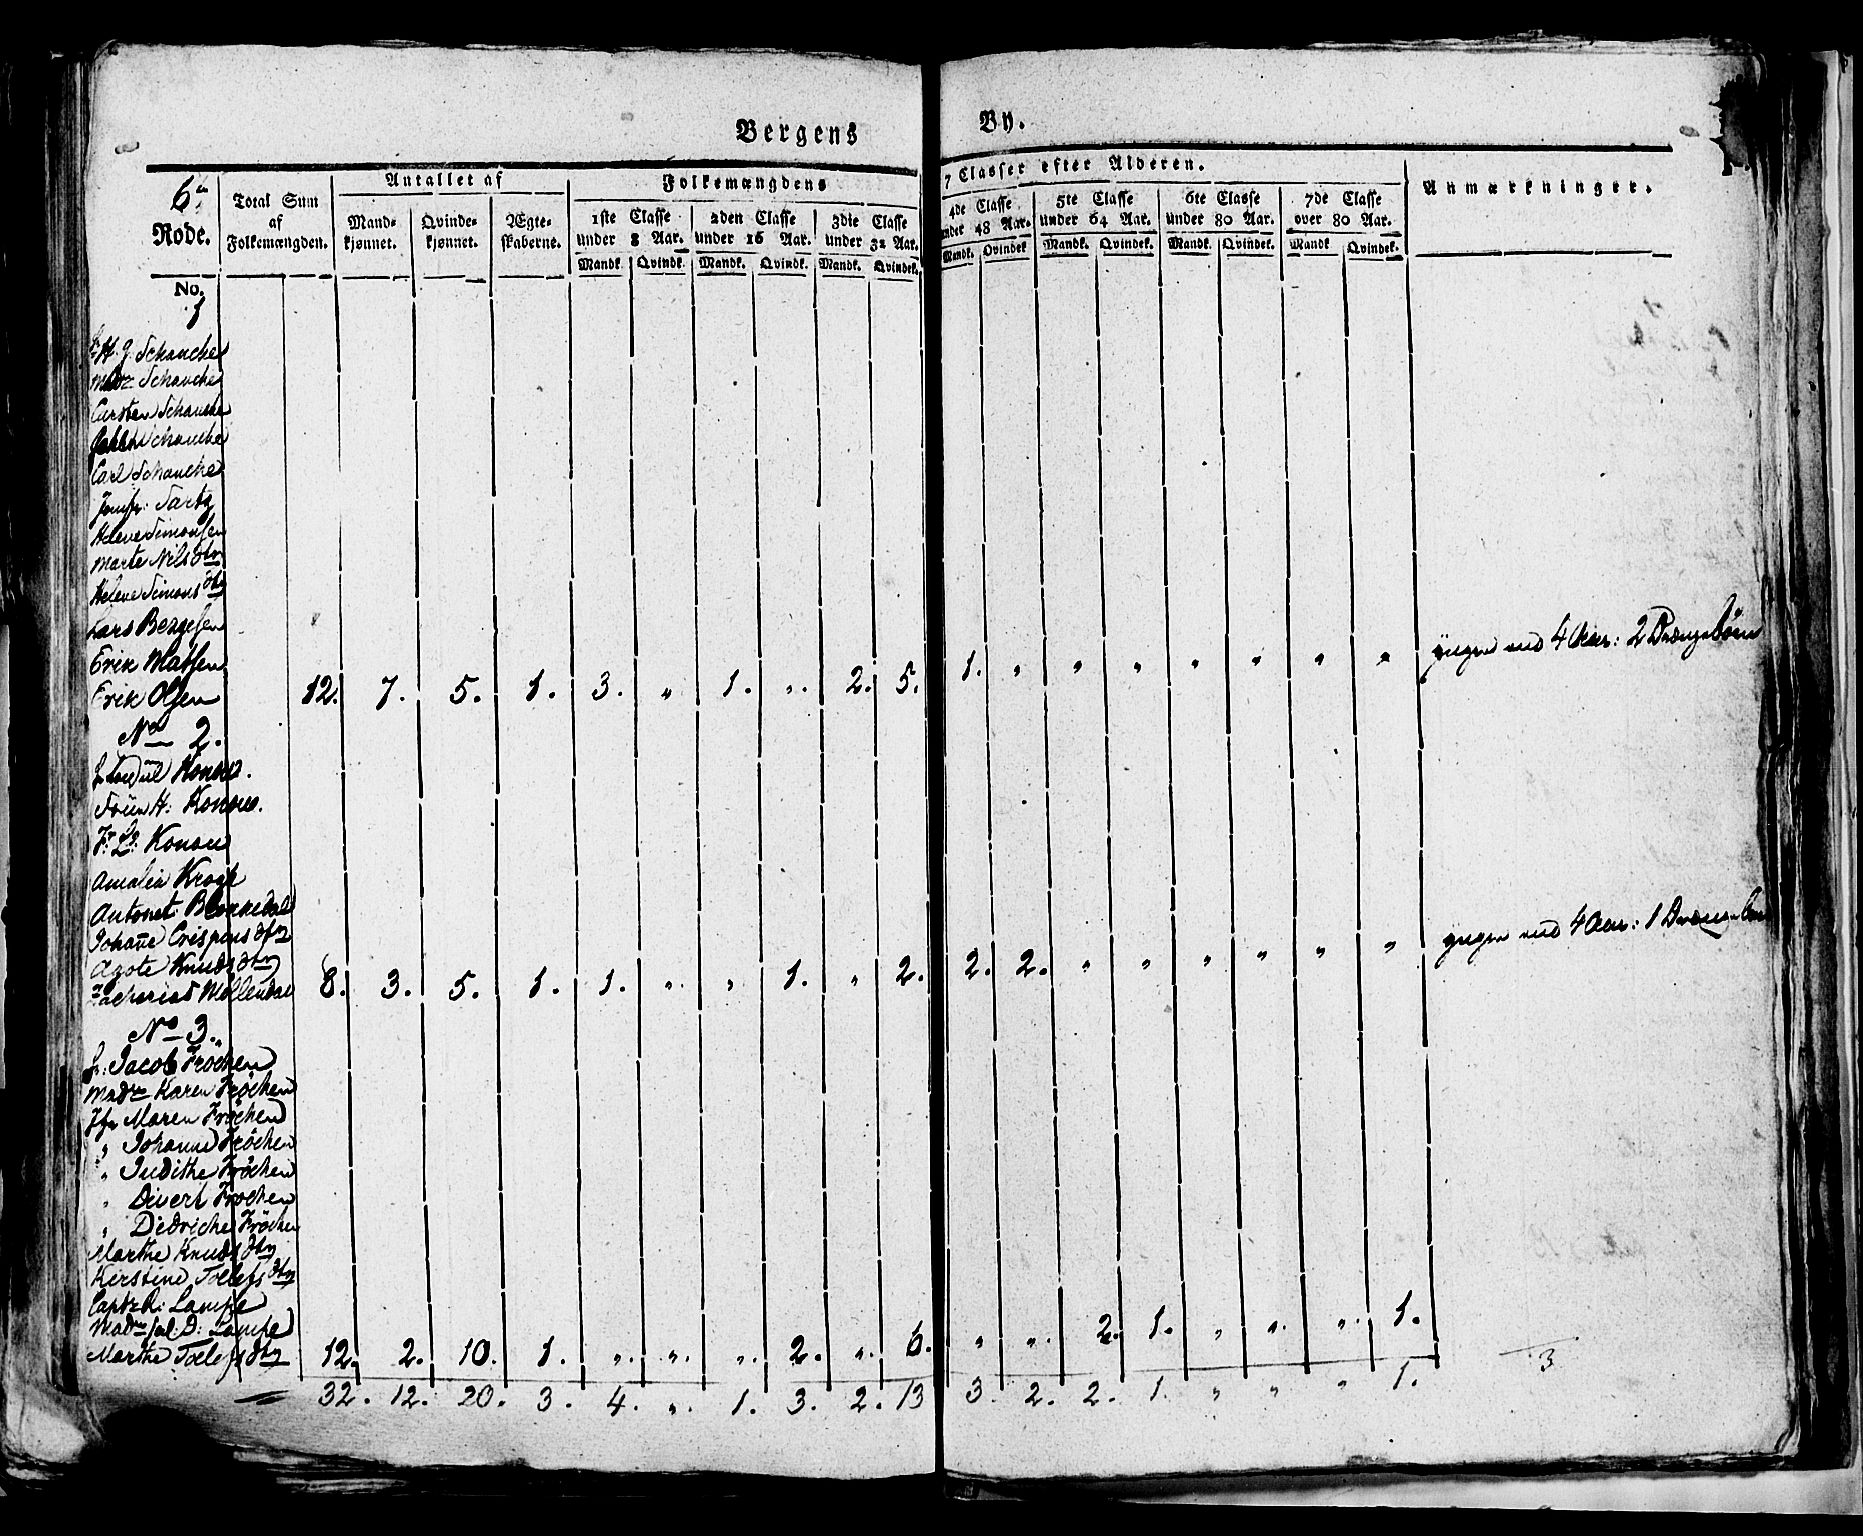 Bergens By.
6te Rode.
Total Sum af Folkemængden.
Antallet af
Mandkjønnet. Qvindekjønnet. Ægteskaberne.
Folkemængdens 7 Classer efter Alderen.
1ste Classe under 8 Aar. 2den Classe under 16 Aar. 3die Classe under 32 Aar. 4de Classe under 48 Aar. 5te Classe under 64 Aar. 6te Classe under 80 Aar. 7de Classe over 80 Aar.
Mandk. Qvindk. Mandk. Qvindk. Mandk. Qvindek. Mandk. Qvindek Mandk. Qvindek. Mandk. Qvindek. Mandk Qvindek.
Anmærkninger.
No. 1
H. J. Schancke
Schancke
Carsten Schancke
Schancke
Carl Schancke
Jomfr: Sartz
Helene Simonsen
Marte Nilsdtr
Helene Simonsdtr
Lars Bergesen
Erik Matsen
Erik Olsen 12. 7. 5. 1. 3. „ 1. „ 2. 5. 1. „ „ „ „ „ „ „ yngere end 4 Aar: 2 Drengebörn
No 2.
Konow.
Früe H: Konow.
Fr: Lg: Konow
Amalia Krogh
Antonet:
Johane Crispinsdtr
Agote Knudsdtr
Zacharias Möllendal 8. 3. 5. 1. 1. „ „ 1. „ 2. 2. 2. „ „ „ „ „ „ yngre end 4 Aar: 1
No 3.
Hr: Jacob Fröchen
Madme Karen Fröchen
Jfr Maren Fröchen
„ Johanne Fröchen
„ Judithe Fröchen
„ Divert Frochen
„ Didriche Fröchen
Marthe Knudsdtr
Kirstine Tollefsdtr
Captn R: Lampe
Madme sal: D: Lampe
Marthe Tollefsdtr 12. 2. 10. 1. „ „ „ 2. „ 6. „ „ 2. 1. „ „ „ 1.
32. 12. 20. 3. 4. „ 1. 3. 2. 13 3. 2. 2. 1. „ „ „ 1. 3